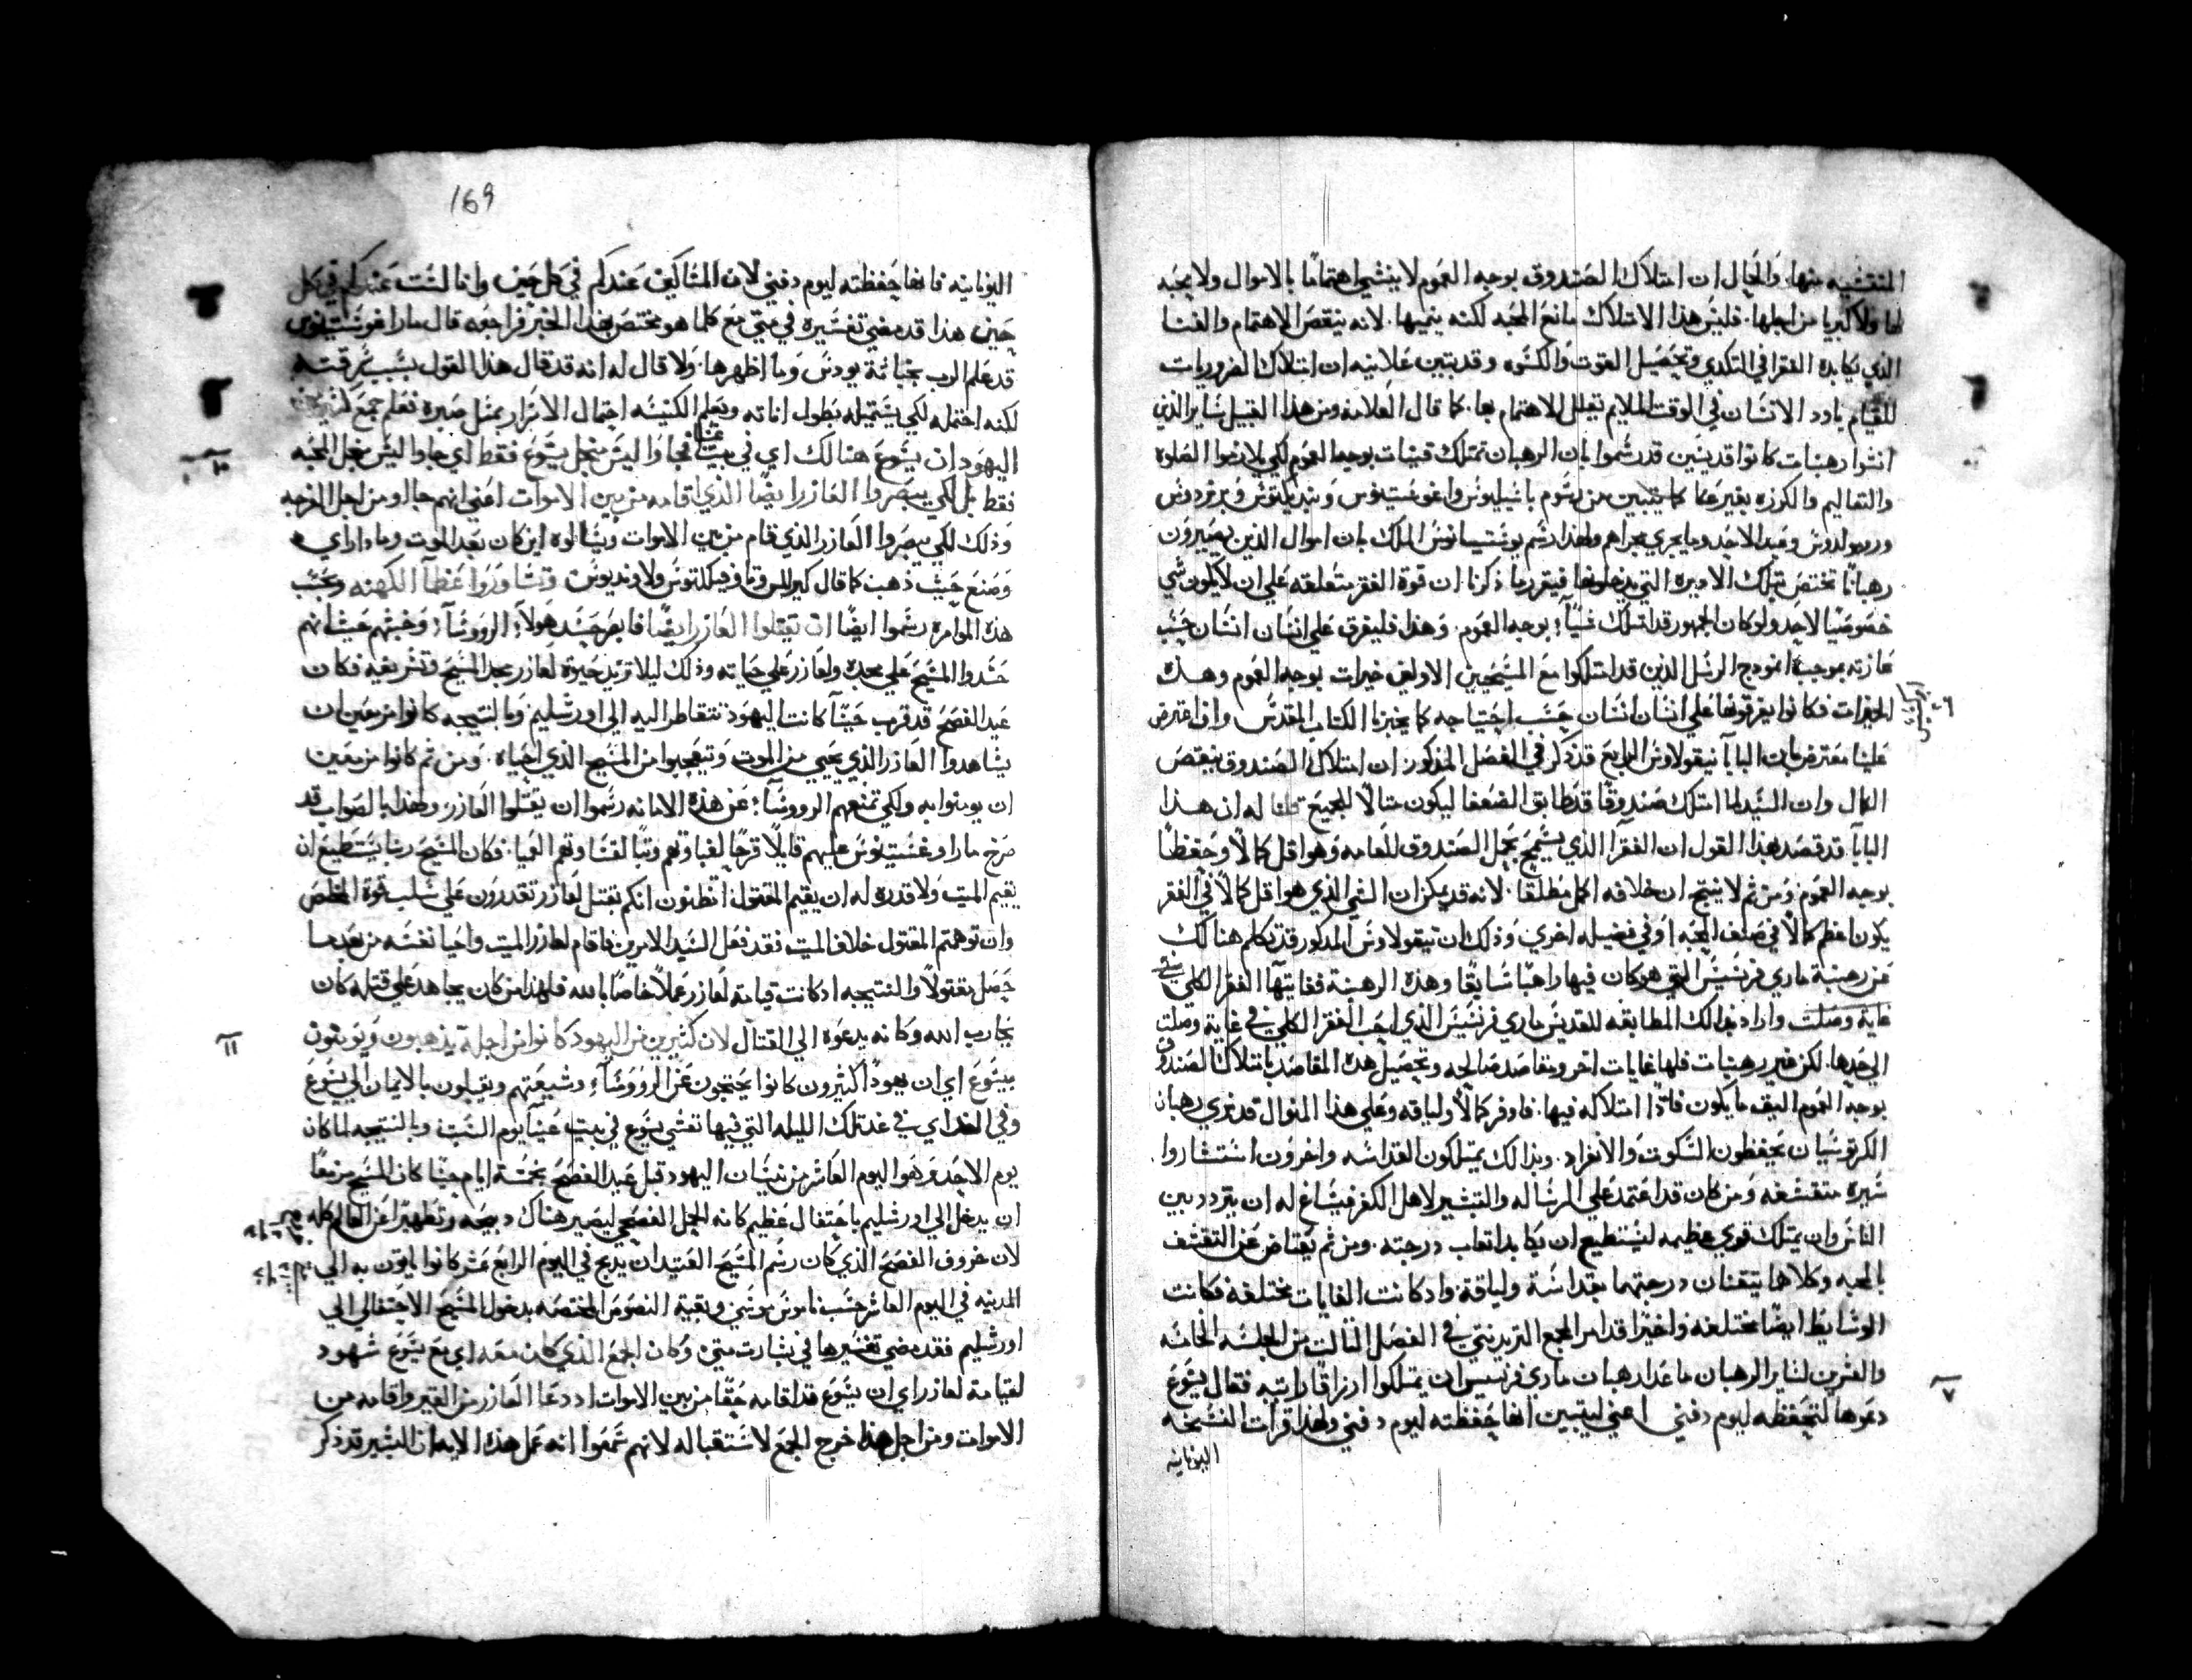 المنقشيه منها. والحال ان امتلاك الصندوق بوجه العموم لا ينشي اهتمامًا بالاموال ولا محبه
لها ولا كبريا من اجلها. فليس هذا الامتلاك مانع المحبه لكنه ينميها. لانه ينقص الاهتمام والعنا
الذي يكابده الفقرا في التكدي وتحصيل القوت والكسوه وقد يتبين علانيه ان امتلاك الضروريات
للقيام باود الانسان في الوقت الملايم تقلل الاهتمام بها. كما قال العلامه ومن هذا القبيل ساير الذين
انشوا رهبنات كانوا قديسين قد رسموا بان الرهبان تمتلك قنيات بوجه العموم لكي يلازموا الصلوه
والتعاليم والكرزه بغير عنا كما يتبين من رسوم باسيليوس واغوستينوس وبنديكتوس وبرنردوس
وعبد الاحد وما يجري مجراهم ولهذا رسم يوستنيانوس الملك بان اموال الذين يصيرون
رهبانًا تختص بتلك الاديره التي يدخلونها فيقرر ما ذكرنا ان قوة الفقر متعلقه علي ان لا يكون شي
خصوصيًا لاحد ولو كان الجمهور قد امتلك غنيًا بوجه العموم. وهذا فليفرق علي انسان انسان حسب
عازته بموجب انموذج الرسل الذين قد امتلكوا مع المسيحيين الاولين خيرات بوجه العموم وهذه
الخيرات فكانوا يفرقونها علي انسان انسان حسب احتياجه كما يخبرنا الكتاب المقدس وان اعترض
علينا معترض بان البابا نيقولاوس الرابع قد ذكر في الفصل المذكور ان امتلاك الصندوق ينقص
الكمال وان السيد لما امتلك صندوقًا قد طابق الضعفا ليكون مثالًا للجميع قلنا له ان هذا
البابا قد قصد بهذا القول ان الفقر الذي يسمح بحمل الصندوق للعامه وهو اقل كمالًا وحفظًا
بوجه العموم ومن ثم لا ينتج ان خلافه اكمل مطلقا. لانه قد يمكن ان الشي الذي هو اقل كمالًا في الفقر
يكون اعظم كمالًا في صنف المحبه او في فضيله اخري وذلك ان نيقولاوس المذكور قد تكلم هنالك
عن رهبنة ماري فرنسيس التي هو كان فيها راهبًا سابقًا وهذه الرهبنه فغايتها الفقر الكلي
غايه وصلت وارا دخالك المطابقه للقديس ماري فرنسيس الذي احب الفقر الكلي في غاية وصلت
الي حدها. لكن غير رهبنات فلها غايات اخر ومقاصد صالحه وتحصيل هذه المقاصد بامتلاك الصندوق
بوجه العموم اليق ما يكون فاذا امتلاكه فيها. فاوفر كمالًا ولياقه وعلي هذا المنوال قد نري رهبان
الكرتوسيان يحفظون السكوت والانفراد. وبذلك يمتلكون القداسه واخرون استشاروا
سيره متقشفه ومن كان قد اعتمد علي الرساله والتبشير لاهل الكفر فيساغ له ان يتردد بين
الناس وان يمتلك قوي عظيمه ليستطيع ان يكابد اتعاب درجته. ومن ثم يعتاض عن التقشف
بالمحبه وكلاهما يتقنان درجتهما بقداسة ولياقة واذ كانت الغايات مختلفه فكانت
الوسايط ايضًا مختلفه واخيرًا قد امر المجمع التريدنتي في الفصل الثالث من الجلسه الخامسه
والعشرين لساير الرهبان ما عدا رهبان ماري فرنسيس ان يمتلكوا ارزاقًا راتبه فقال يسوع
دعوها لتحفظه ليوم دفني اعني ليتبين انها حفظته ليوم دفني ولهذا قرات النسخه
اليونانيه
٧
169
اليونانيه فانها حفظته ليوم دفني لان المساكين عندكم في كل حين وانا لست عندكم في كل
حين هذا قد مضي تفسيره في متي مع كلما هو مختص بهذا الخبر فراجعه قال مار اغوستينوس
قد علم الرب بخيانة يودس وما اظهرها. ولا قال له انه قد قال هذا القول بسبب سرقته
لكنه احتمله لكي يستميله بطول اناته ويعلم الكنيسه احتمال الاشرار بمثل صبره فعلم جمع كثير من
اليهود ان يسوع هنالك اي في بيت عنيا فجاوا ليس من اجل يسوع فقط اي جاوا ليس من اجل المحبه
فقط بل لكي يبصروا العازر ايضًا الذي اقامه من بين الاموات اعني انهم جاوا ومن اجل الفرجه
وذلك لكي يبصروا العازر الذي قام من بين الاموات ويسالوه اين كان بعد الموت وماذا راي
وصنع حيث ذهب كما قال كيرللس وثاوفيلكتوس ولاونديوس وتشاوروا عظما الكهنه وبحسب
هذه الموامره رسموا ايضًا ان يقتلوا العازر ايضًا فابصر حسد هولاء الروسا وخبثهم حيث انهم
حسدوا المسيح علي مجده ولعازر علي حياته وذلك ليلا تزيد حيوة لعازر مجد المسيح وتشريفه فكان
عيد الفصح قد قرب حيثما كانت اليهود تتقاطر اليه الي اورشليم وبالنتيجه كانوا مزمعين ان
يشاهدوا العازر الذي يحيي من الموت ويتعجبوا من المسيح الذي احياه. ومن ثم كانوا مزمعين
ان يومنوا به ولكي تمنعهم الروسا عن هذه الامانه رسموا ان يقتلوا العازر. ولهذا بالصواب قد
صرخ مار اوغستينوس عليهم قايلًا قرحًا لغباوتهم وتبًا لقساوتهم العميا. فكان المسيح ربنا يستطيع ان
يقيم الميت ولا قدره له ان يقيم المقتول اتظنون انكم بقتل لعازر تقدرون علي سلب قوة المخلص
وان توهمتم المقتول خلاف الميت فقد فعل السيد الامرين فاقام لعازر الميت واحيا نفسه من بعد ما
حصل مقتولًا والنتيجه اذ كانت قيامة لعازر عملًا خاصًا بالله فلهذا من كان يجاهد علي قتله كان
يحارب الله وكانه يدعوه الي القتال لان كثيرين من اليهود كانوا من اجله يذهبون ويومنون
بيسوع اي ان يهودًا كثيرون كانوا يحتجون عن الروسا وشيعتهم ويقبلون بالايمان الي يسوع
وفي الغد اي في غد تلك الليله التي فيها تعشي يسوع في بيت عنيا يوم السبت وبالنتيجه لما كان
يوم الاحد وهو اليوم العاشر من نيسان اليهود قبل عيد الفصح بخمسة ايام حيثما كان المسيح مزمعًا
ان يدخل الي اورشليم باحتفال عظيم كانه الحمل الفصحي ليصير هناك دبيحه وتطهيرًا عن العالم كله
لان خروف الفصح الذي كان رسم المسيح العتيد ان يدبح في اليوم الرابع عشر كانوا ياتون به الي
المدينه في اليوم العاشر حسب ناموس موسي وبقية النصوص المختصه بدخول المسيح الاحتفالي الي
اورشليم فقد مضي تفسيرها في بشارت متي وكان الجمع الذي كان معه اي مع يسوع شهود
لقيامة لعازر اي ان يسوع قد اقامه حقًا من بين الاموات اذ دعا العازر من القبر واقامه من
الاموات ومن اجل هذا خرج الجمع لاستقباله لانهم سمعوا انه عمل هذه الايه ان البشير قد ذكر
١٠
١١